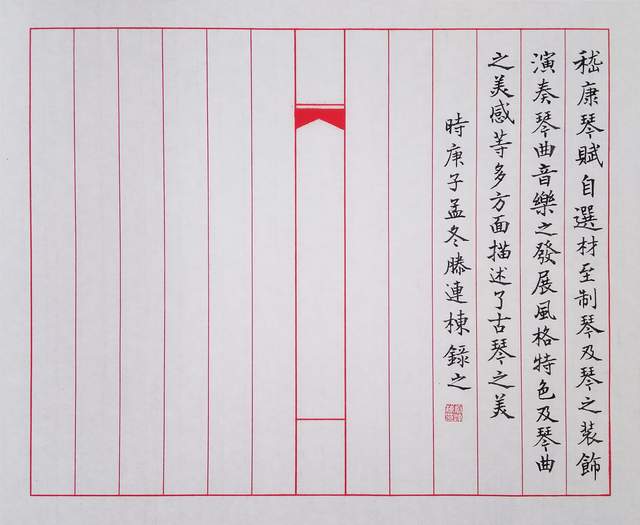 嵇康琴賦自選材至制琴及琴之装飾
演奏琴曲音樂之發展風格特色及琴曲
之美感等多方面描述了古琴之美
時庚子孟冬滕連棟錄之